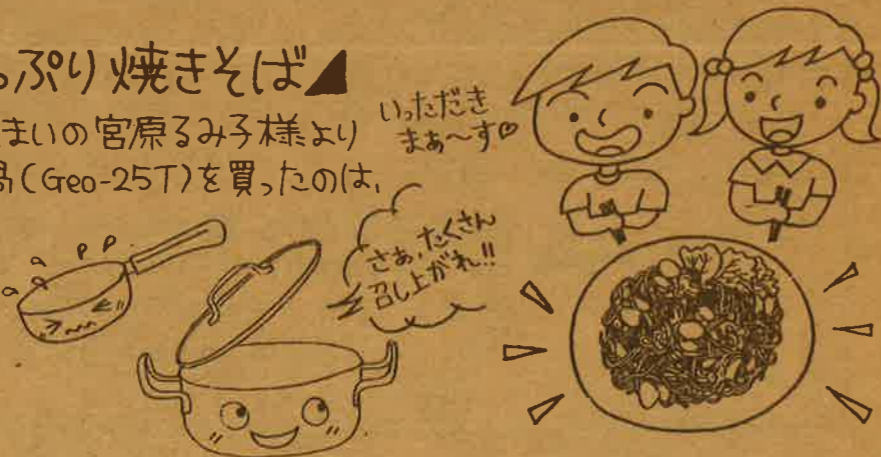 っぷり焼きそば
まいの宮原るみ子様より
(Geo-25T)を買ったのは、
いっただき
まぁ〜す♡
さぁ、たくさん
召し上がれ!!